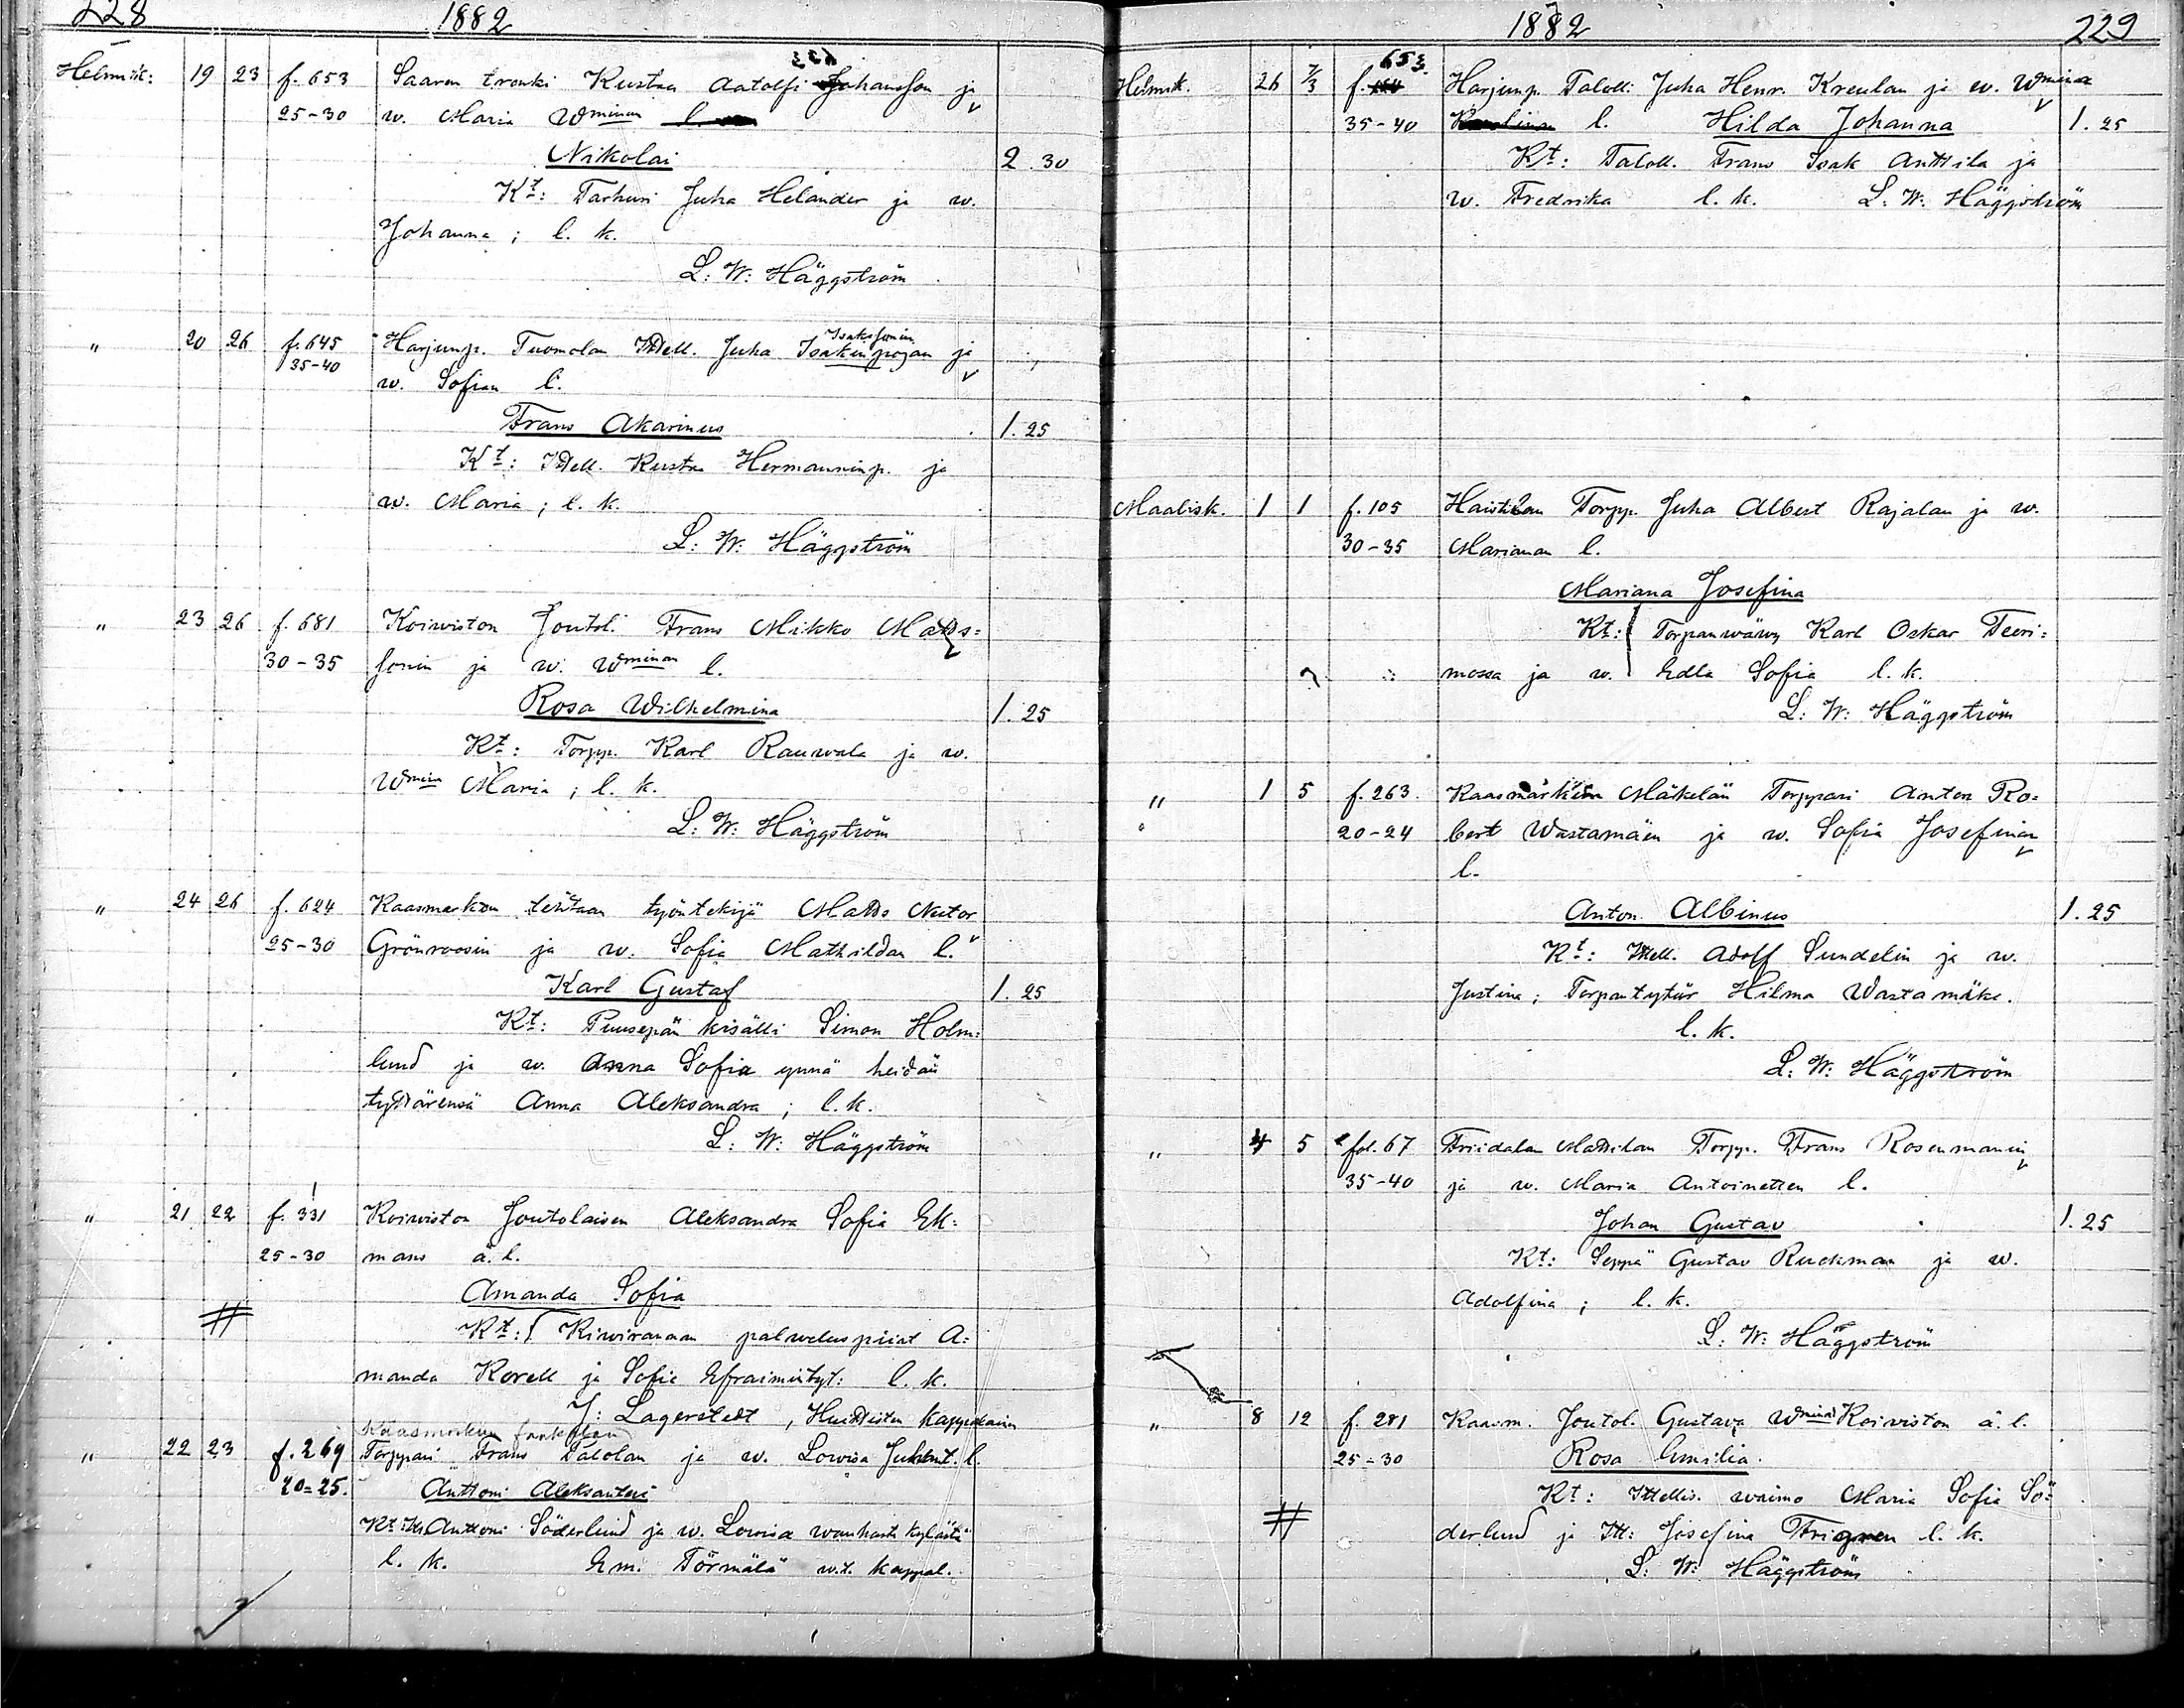 228 1882
Helmik: 19 23 f. 653 Saaren trenki Kustaa Aatolfi Johansson ja
25-30 w. Maria Wminan
Nikolai 2. 30
Kt: Tarhuri Juha Helander ja w.
Johanna; l. k.
L: W: Häggström
" 20 26 f. 645 Harjunp. Tuomolan Itsell. Juha Isakinpojan Isakssonin ja
35-40 w. Sofian l.
Frans Akarinus 1. 25
Kt: Itsell. Kustaa Hermanninp. ja
w. Maria; l. k.
L: W: Häggström
" 23 26 f. 681 Koiwiston Joutol. Frans Mikko Mats=
30-35 sonin ja w. Wminan l.
Rosa Wilhelmina 1. 25
Kt: Torpp. Karl Rauwala ja w.
Wmina Maria; l. k.
L: W: Häggström
" 24 26 f. 624 Kaasmarkun tehtaan työntekijä Matts Nestor
25-30 Grönroosin ja w. Sofia Mathildan l.
Karl Gustaf 1. 25
Kt: Puusepän kisälli Simon Holm=
lund ja w. Anna Sofia ynnä heidän
tyttärensä Anna Aleksandra; l. k.
L: W: Häggström
" 21 22 f. 331 Koiwiston Joutolaisen Aleksandra Sofia Ek=
25-30 mans ä. l.
Amanda Sofia
Kt: Kiwirannan palweluspiiat A=
manda Korell ja Sofia Efraimintyt: l. k.
J: Lagerstedt, Huittisten Kappalainen
" 22 23 f. 269 Torppari Frans Talolan ja w. Lowisa Juhant. l.
20-25. Anttoni Aleksanteri
Kt: Its. Anttoni Söderlund ja w. Lowisa wanhasta kylästä
l. k. Em. Törmälä w.t. kappal.
1882 229
Helmik. 26 7/3 f. 653. Harjunp. Taloll: Juha Henr. Kreulan ja w. Wmina
35-40 l. Hilda Johanna 1. 25
Kt: Taloll. Frans Isak Anttila ja
w. Fredrika l. k. L: W: Häggström
Maalisk. 1 1 f. 105 Haistilan Torpp. Juha Albert Rajalan ja w.
30-35 Marianan l.
Mariana Josefina
Kt: Torpanwäwy Karl Oskar Teeri=
mossa ja w. Edla Sofia l. k.
L: W: Häggström
" 1 5 f. 263. Kaasmarkun Mäkelän Torppari Anton Ro=
20-24 bert Wastamäen ja w. Sofia Josefinan
l.
Anton Albinus 1. 25
Kt: Itsell. Adolf Sundelin ja w.
Justina; Torpantytär Hilma Wastamäke.
l. k.
L: W: Häggström
" 4 5 fol. 67 Friidalan Mattilan Torpp. Frans Rosenmanin
35-40 ja w. Maria Antoinetten l.
Johan Gustav 1. 25
Kt: Seppä Gustav Ruckman ja w.
Adolfina; l. k.
L: W: Häggström
" 8 12 f. 281 Kaasm. Joutol. Gustava Wmina Koiviston ä. l.
25-30 Rosa Emilia.
Kt: Itsellis. waimo Maria Sofia Sö=
derlund ja Its: Josefina Frigren l. k.
L: W: Häggström